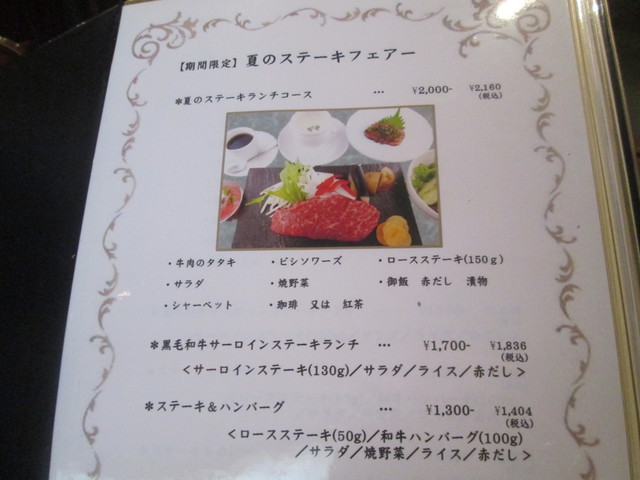 【期間限定】夏のステーキフェアー
＊夏のステーキランチコース … ¥2,000- ¥2,160
(税込)
・牛肉のタタキ ・ビシソワーズ ・ロースステーキ(150g)
・サラダ ・焼野菜 ・御飯 赤だし 漬物
・シャーベット ・珈琲 又は 紅茶
＊黒毛和牛サーロインステーキランチ … ¥1,700- ¥1,836
(税込)
＜サーロインステーキ(130g)／サラダ／ライス／赤だし＞
＊ステーキ＆ハンバーグ … ¥1,300- ¥1,404
(税込)
＜ロースステーキ(50g)／和牛ハンバーグ(100g)
／サラダ／焼野菜／ライス／赤だし＞